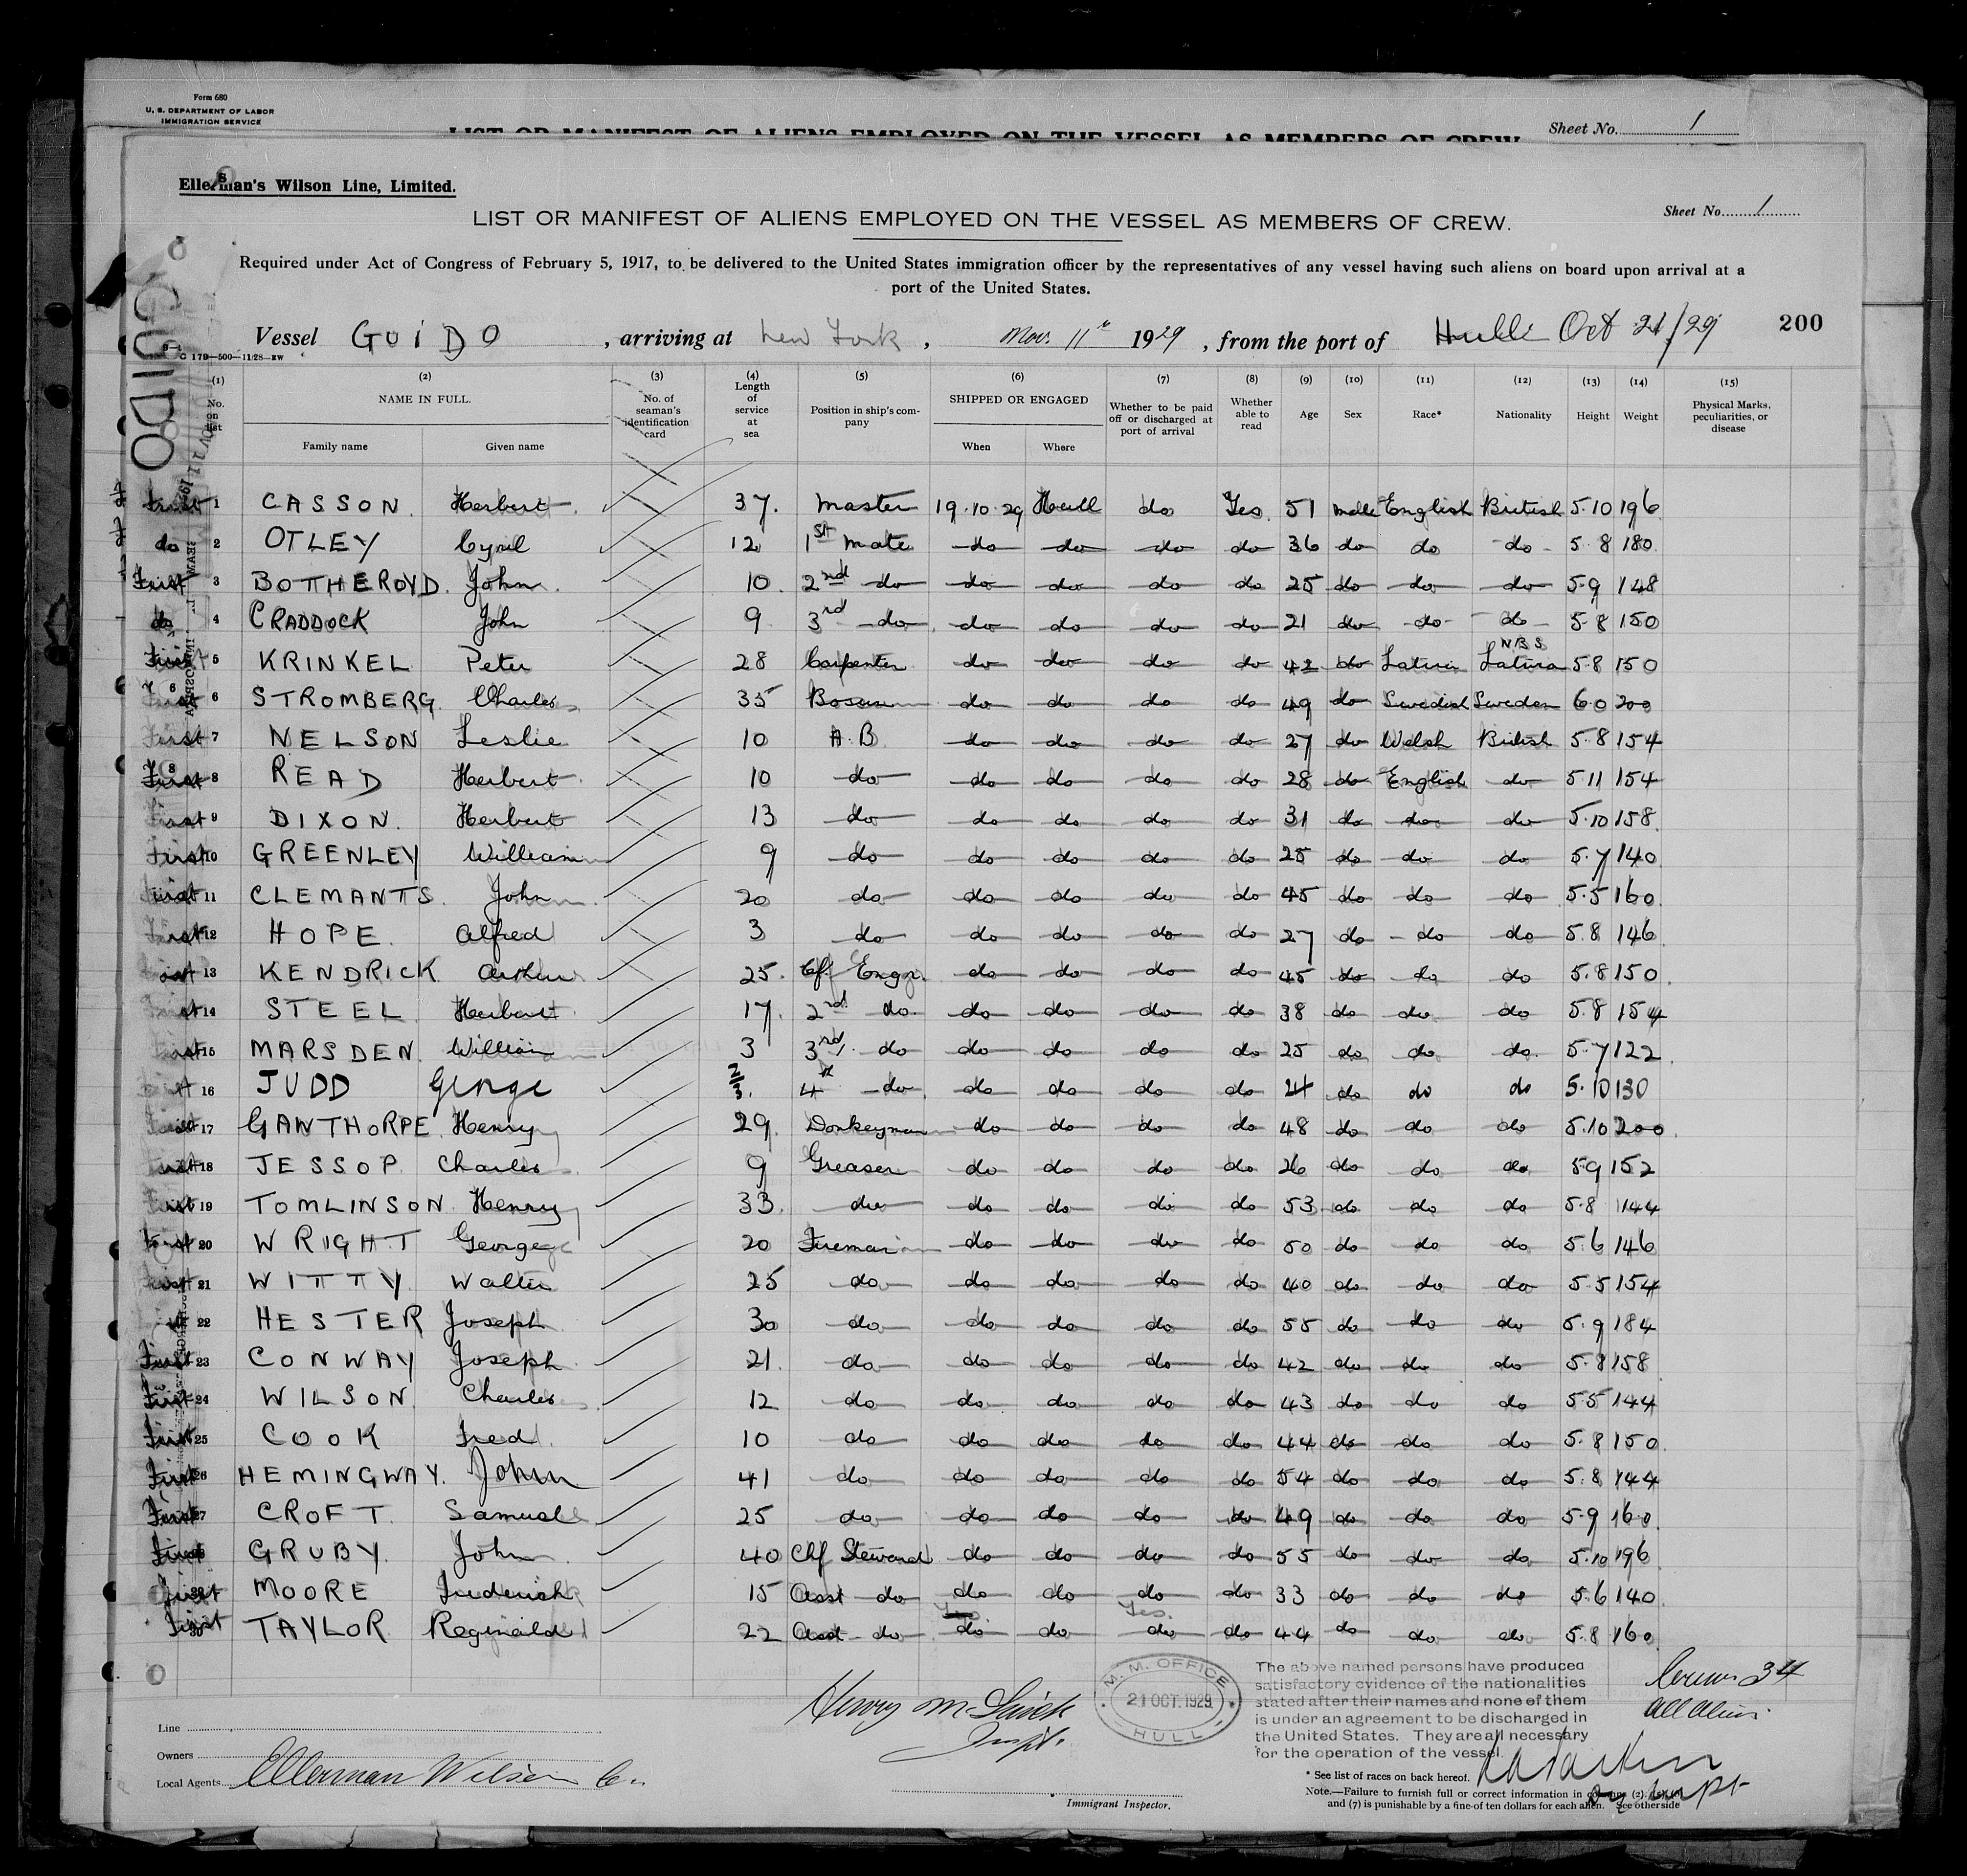 Form 680
U. S. DEPARTMENT OF LABOR
IMMIGRATION SERVICE
LIST OR MANIFEST OF ALIENS EMPLOYED ON THE VESSEL AS MEMBERS OF CREW
Sheet No. 1
Ellerman's Wilson Line, Limited.
Sheet No. 1
LIST OR MANIFEST OF ALIENS EMPLOYED ON THE VESSEL AS MEMBERS OF CREW.
Required under Act of Congress of February 5, 1917, to be delivered to the United States immigration officer by the representatives of any vessel having such aliens on board upon arrival at a
port of the United States.
GUIDO
Vessel GUIDO, arriving at New York, Nov. 11th 1929, from the port of Hull Oct 21/29 200
C 179—500—11/28—EW
(1) No. on list (2) NAME IN FULL. Family name Given name (3) No. of seaman's identification card (4) Length of service at sea (5) Position in ship's company (6) SHIPPED OR ENGAGED When Where (7) Whether to be paid off or discharged at port of arrival (8) Whether able to read (9) Age (10) Sex (11) Race* (12) Nationality (13) Height (14) Weight (15) Physical Marks, peculiarities, or disease
First 1 CASSON. Herbert 37. Master 19.10.29 Hull do Yes. 51 Male English British 5.10 196
do 2 OTLEY Cyril 12 1st Mate do do do do 36 do do do 5 8 180
First 3 BOTHEROYD. John 10. 2nd do do do do do 25 do do do 5.9 148
do 4 CRADDOCK John 9 3rd do do do do do 21 do do do 5 8 150
First 5 KRINKEL Peter 28 Carpenter do do do do 42 do Latvia N.B.S Latvia 5.8 150
First 6 STROMBERG. Charles 35 Bosun do do do do 49 do Swedish Sweden 6.0 200
First 7 NELSON Leslie 10 A.B. do do do do 27 do Welsh British 5.8 154
First 8 READ Herbert 10 do do do do do 28 do English do 5 11 154
First 9 DIXON. Herbert 13 do do do do do 31 do do do 5.10 158
First 10 GREENLEY William 9 do do do do do 25 do do do 5.7 140
First 11 CLEMANTS. John 20 do do do do do 45 do do do 5.5 160
First 12 HOPE. Alfred 3 do do do do do 27 do do do 5 8 146
First 13 KENDRICK Arthur 25. Cf. Engr. do do do do 45 do do do 5.8 150
First 14 STEEL Herbert 17. 2nd do do do do do 38 do do do 5.8 154
First 15 MARSDEN. William 3 3rd do do do do do 25 do do do 5.7 122
First 16 JUDD George 2/3. 4th do do do do do 24 do do do 5.10 130
First 17 GAWTHORPE Henry 29 Donkeyman do do do do 48 do do do 5.10 200
First 18 JESSOP Charles 9 Greaser do do do do 26 do do do 5.9 152
First 19 TOMLINSON Henry 33. do do do do do 53 do do do 5.8 144
First 20 WRIGHT George 20 Fireman do do do do 50 do do do 5.6 146
First 21 WITTY Walter 25 do do do do do 40 do do do 5.5 154
22 HESTER Joseph 30 do do do do do 55 do do do 5.9 184
First 23 CONWAY Joseph 21. do do do do do 42 do do do 5.8 158
First 24 WILSON Charles 12 do do do do do 43 do do do 5.5 144
First 25 COOK Fred 10 do do do do do 44 do do do 5.8 150
First 26 HEMINGWAY. John 41 do do do do do 54 do do do 5.8 144
First 27 CROFT Samuel 25 do do do do do 49 do do do 5.9 160
First GRUBY John 40 Chf Steward do do do do 55 do do do 5.10 196
First MOORE Frederick 15 Asst do do do do do 33 do do do 5.6 140
First 30 TAYLOR Reginald 22 Asst do do do Yes. do do 44 do do do 5.8 160
M. M. OFFICE
21 OCT. 1929
HULL
The above named persons have produced
satisfactory evidence of the nationalities
stated after their names and none of them
is under an agreement to be discharged in
the United States. They are all necessary
for the operation of the vessel.
34
All Aliens
Line
Owners
Local Agents Ellerman Wilson Co.
* See list of races on back hereof.
Note.—Failure to furnish full or correct information in columns (2),
and (7) is punishable by a fine of ten dollars for each alien. See other side
Immigrant Inspector.